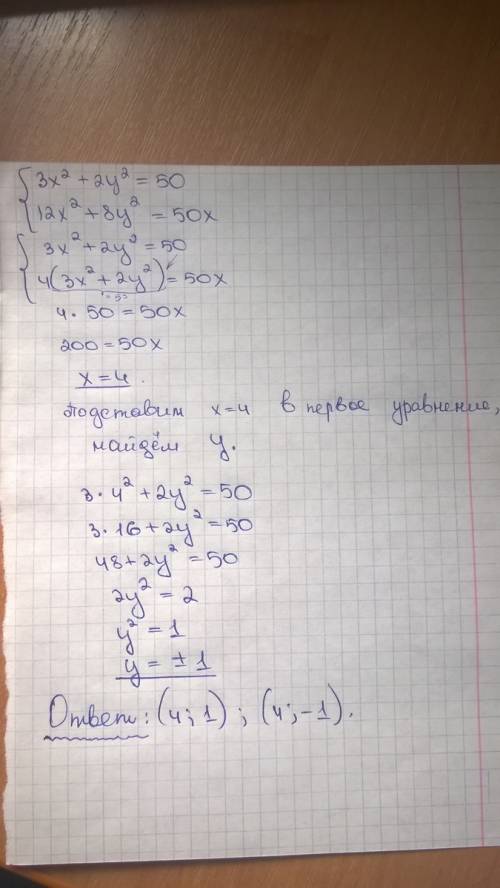 3x² + 2y² = 50
12x² + 8y² = 50x
3x² + 2y² = 50
4(3x² + 2y²) = 50x
4 · 50 = 50x
200 = 50x
x = 4.
Подставим x=4 в первое уравнение,
найдём y.
3 · 4² + 2y² = 50
3 · 16 + 2y² = 50
48 + 2y² = 50
2y² = 2
y² = 1
y = ± 1
Ответ: (4; 1) ; (4; -1).